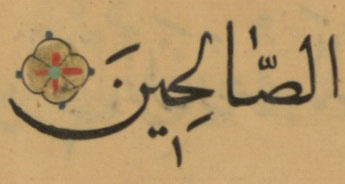 الصَّالِحِينَ
١